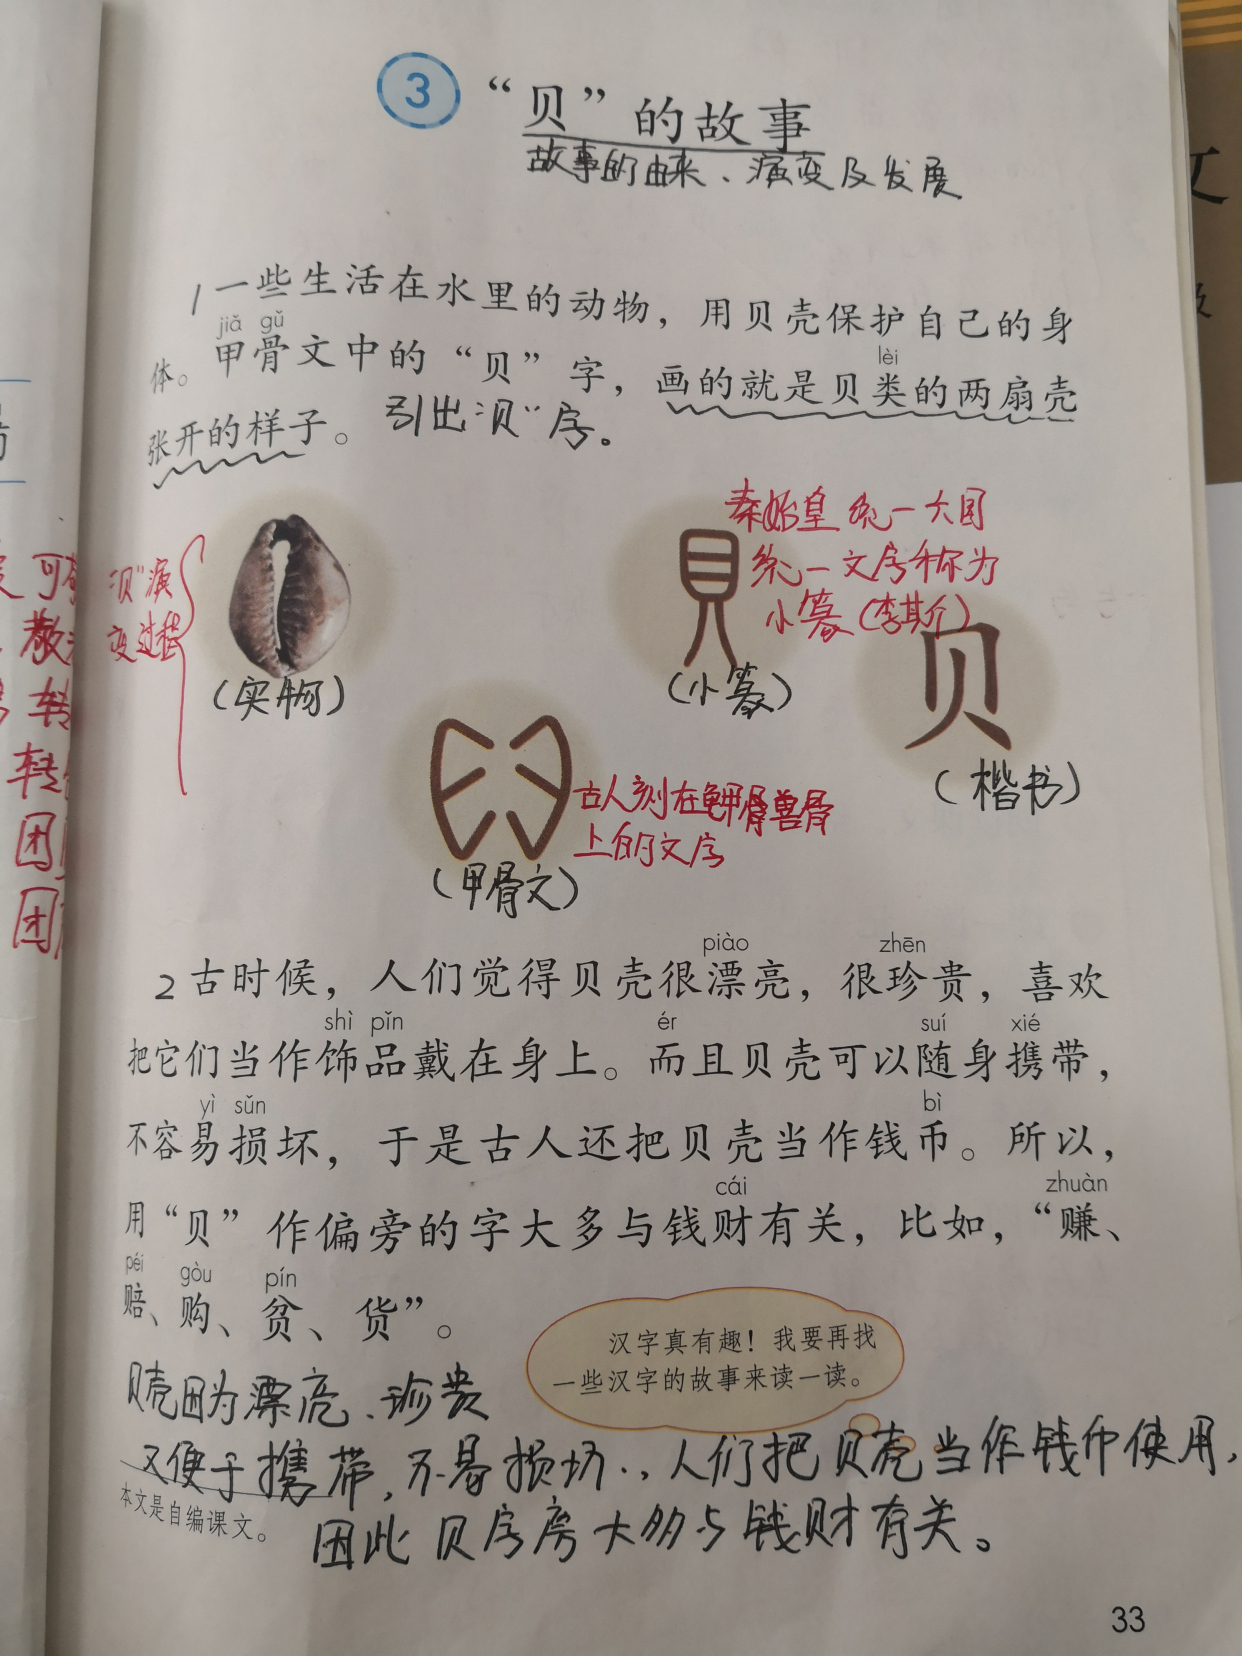 3 “贝”的故事
故事的由来、演变及发展
1 一些生活在水里的动物，用贝壳保护自己的身
jiǎ gǔ lèi
体。甲骨文中的“贝”字，画的就是贝类的两扇壳
张开的样子。 引出“贝”字。
秦始皇统一六国
统一文字称为
小篆（李斯）
“贝”演
变过程
貝
贝
（实物）
（小篆）
（楷书）
古人刻在龟甲骨兽骨
上的文字
（甲骨文）
piào zhēn
2 古时候，人们觉得贝壳很漂亮，很珍贵，喜欢
shì pǐn ér suí xié
把它们当作饰品戴在身上。而且贝壳可以随身携带，
yì sǔn bì
不容易损坏，于是古人还把贝壳当作钱币。所以，
cái zhuàn
用“贝”作偏旁的字大多与钱财有关，比如，“赚、
péi gòu pín
赔、购、贫、货”。
汉字真有趣！我要再找
一些汉字的故事来读一读。
贝壳因为漂亮、珍贵
又便于携带，不易损坏，人们把贝壳当作钱币使用，
本文是自编课文。
因此贝字旁大多与钱财有关。
33
可
转
转
团
团
文